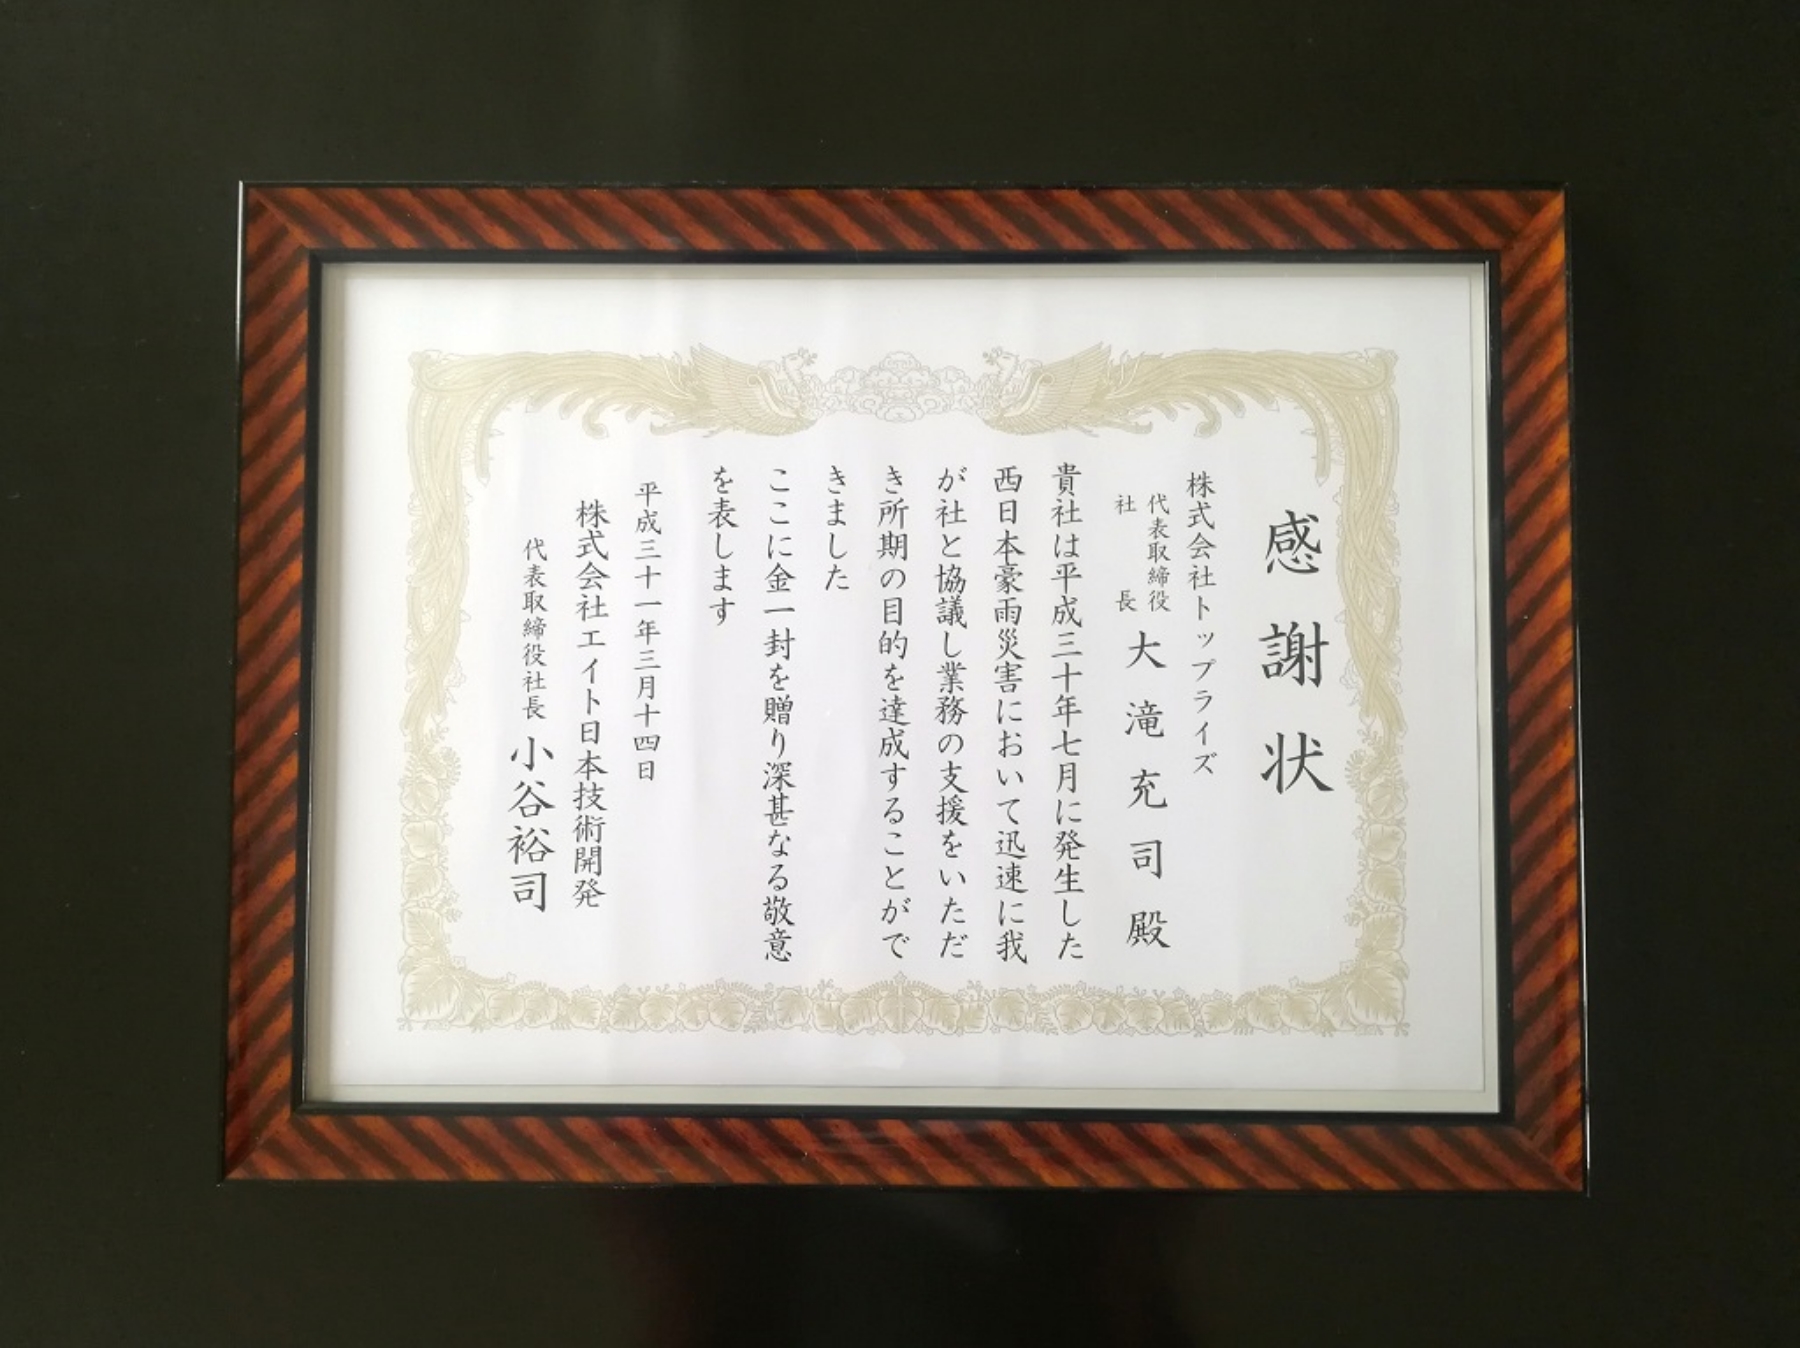 感謝状
株式会社トップライズ
代表取締役
社長
大滝充司殿
貴社は平成三十年七月に発生した
西日本豪雨災害において迅速に我
が社と協議し業務の支援をいただ
き所期の目的を達成することがで
きました
ここに金一封を贈り深甚なる敬意
を表します
平成三十一年三月十四日
株式会社エイト日本技術開発
代表取締役社長 小谷裕司